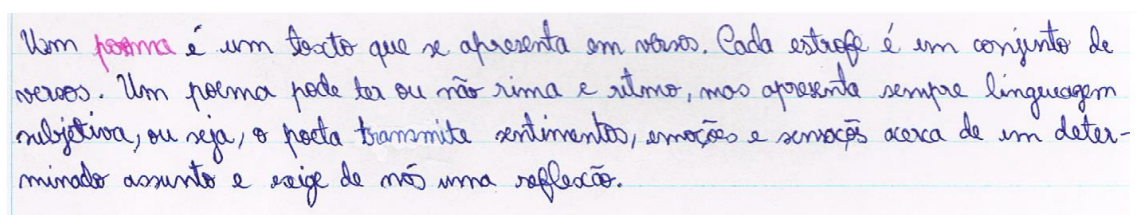 Um poema é um texto que se apresenta em versos. Cada estrofe é um conjunto de
versos. Um poema pode ter ou não rima e ritmo, mas apresenta sempre linguagem
subjetiva, ou seja, o poeta transmite sentimentos, emoções e sensações acerca de um deter-
minado assunto e exige de nós uma reflexão.